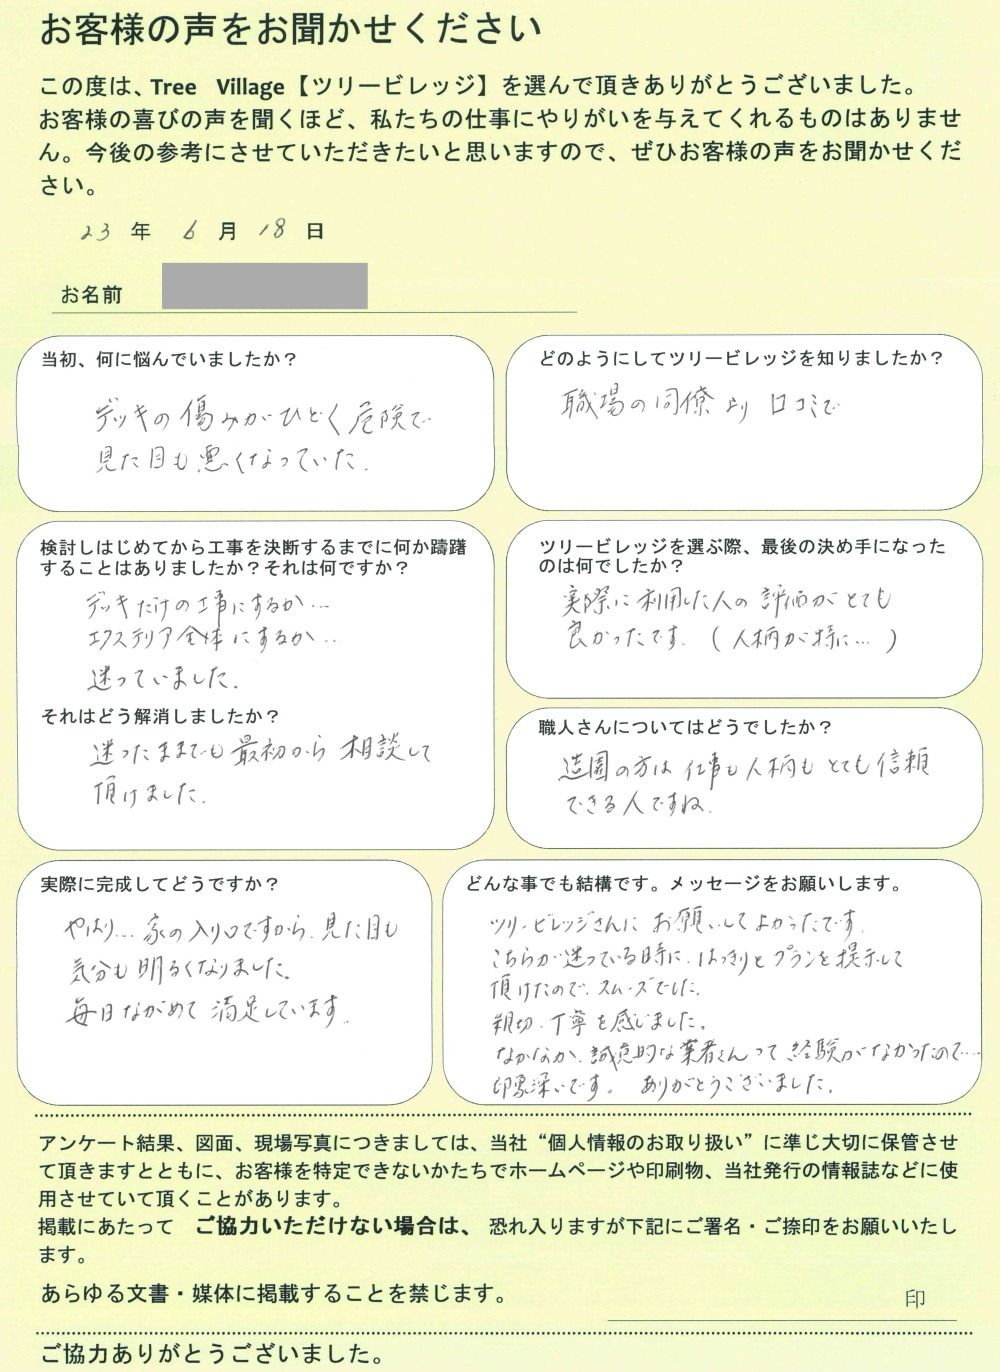 お客様の声をお聞かせください
この度は、Tree Village【ツリービレッジ】を選んで頂きありがとうございました。
お客様の喜びの声を聞くほど、私たちの仕事にやりがいを与えてくれるものはありませ
ん。今後の参考にさせていただきたいと思いますので、ぜひお客様の声をお聞かせくだ
さい。
23 年 6 月 18 日
お名前
当初、何に悩んでいましたか？
デッキの傷みがひどく危険で
見た目も悪くなっていた.
どのようにしてツリービレッジを知りましたか？
職場の同僚より 口コミで
検討しはじめてから工事を決断するまでに何か躊躇
することはありましたか？それは何ですか？
デッキだけの工事にするか…
エクステリア全体にするか…
迷っていました.
それはどう解消しましたか？
迷ったままでも最初から相談して
頂けました.
ツリービレッジを選ぶ際、最後の決め手になった
のは何でしたか？
実際に利用した人の評価がとても
良かったです. (人柄が特に…)
職人さんについてはどうでしたか？
造園の方は仕事も人柄もとても信頼
できる人ですね.
実際に完成してどうですか？
やはり…家の入り口ですから、見た目も
気分も明るくなりました.
毎日ながめて満足しています.
どんな事でも結構です。メッセージをお願いします。
ツリービレッジさんにお願いしてよかったです.
こちらが迷っている時に、はっきりとプランを提示して
頂けたので、スムーズでした.
親切、丁寧を感じました.
なかなか、誠意的な業者さんって経験がなかったので…
印象深いです。 ありがとうございました.
アンケート結果、図面、現場写真につきましては、当社“個人情報のお取り扱い”に準じ大切に保管させ
て頂きますとともに、お客様を特定できないかたちでホームページや印刷物、当社発行の情報誌などに使
用させていて頂くことがあります。
掲載にあたって ご協力いただけない場合は、 恐れ入りますが下記にご署名・ご捺印をお願いいたし
ます。
あらゆる文書・媒体に掲載することを禁じます。
印
ご協力ありがとうございました。